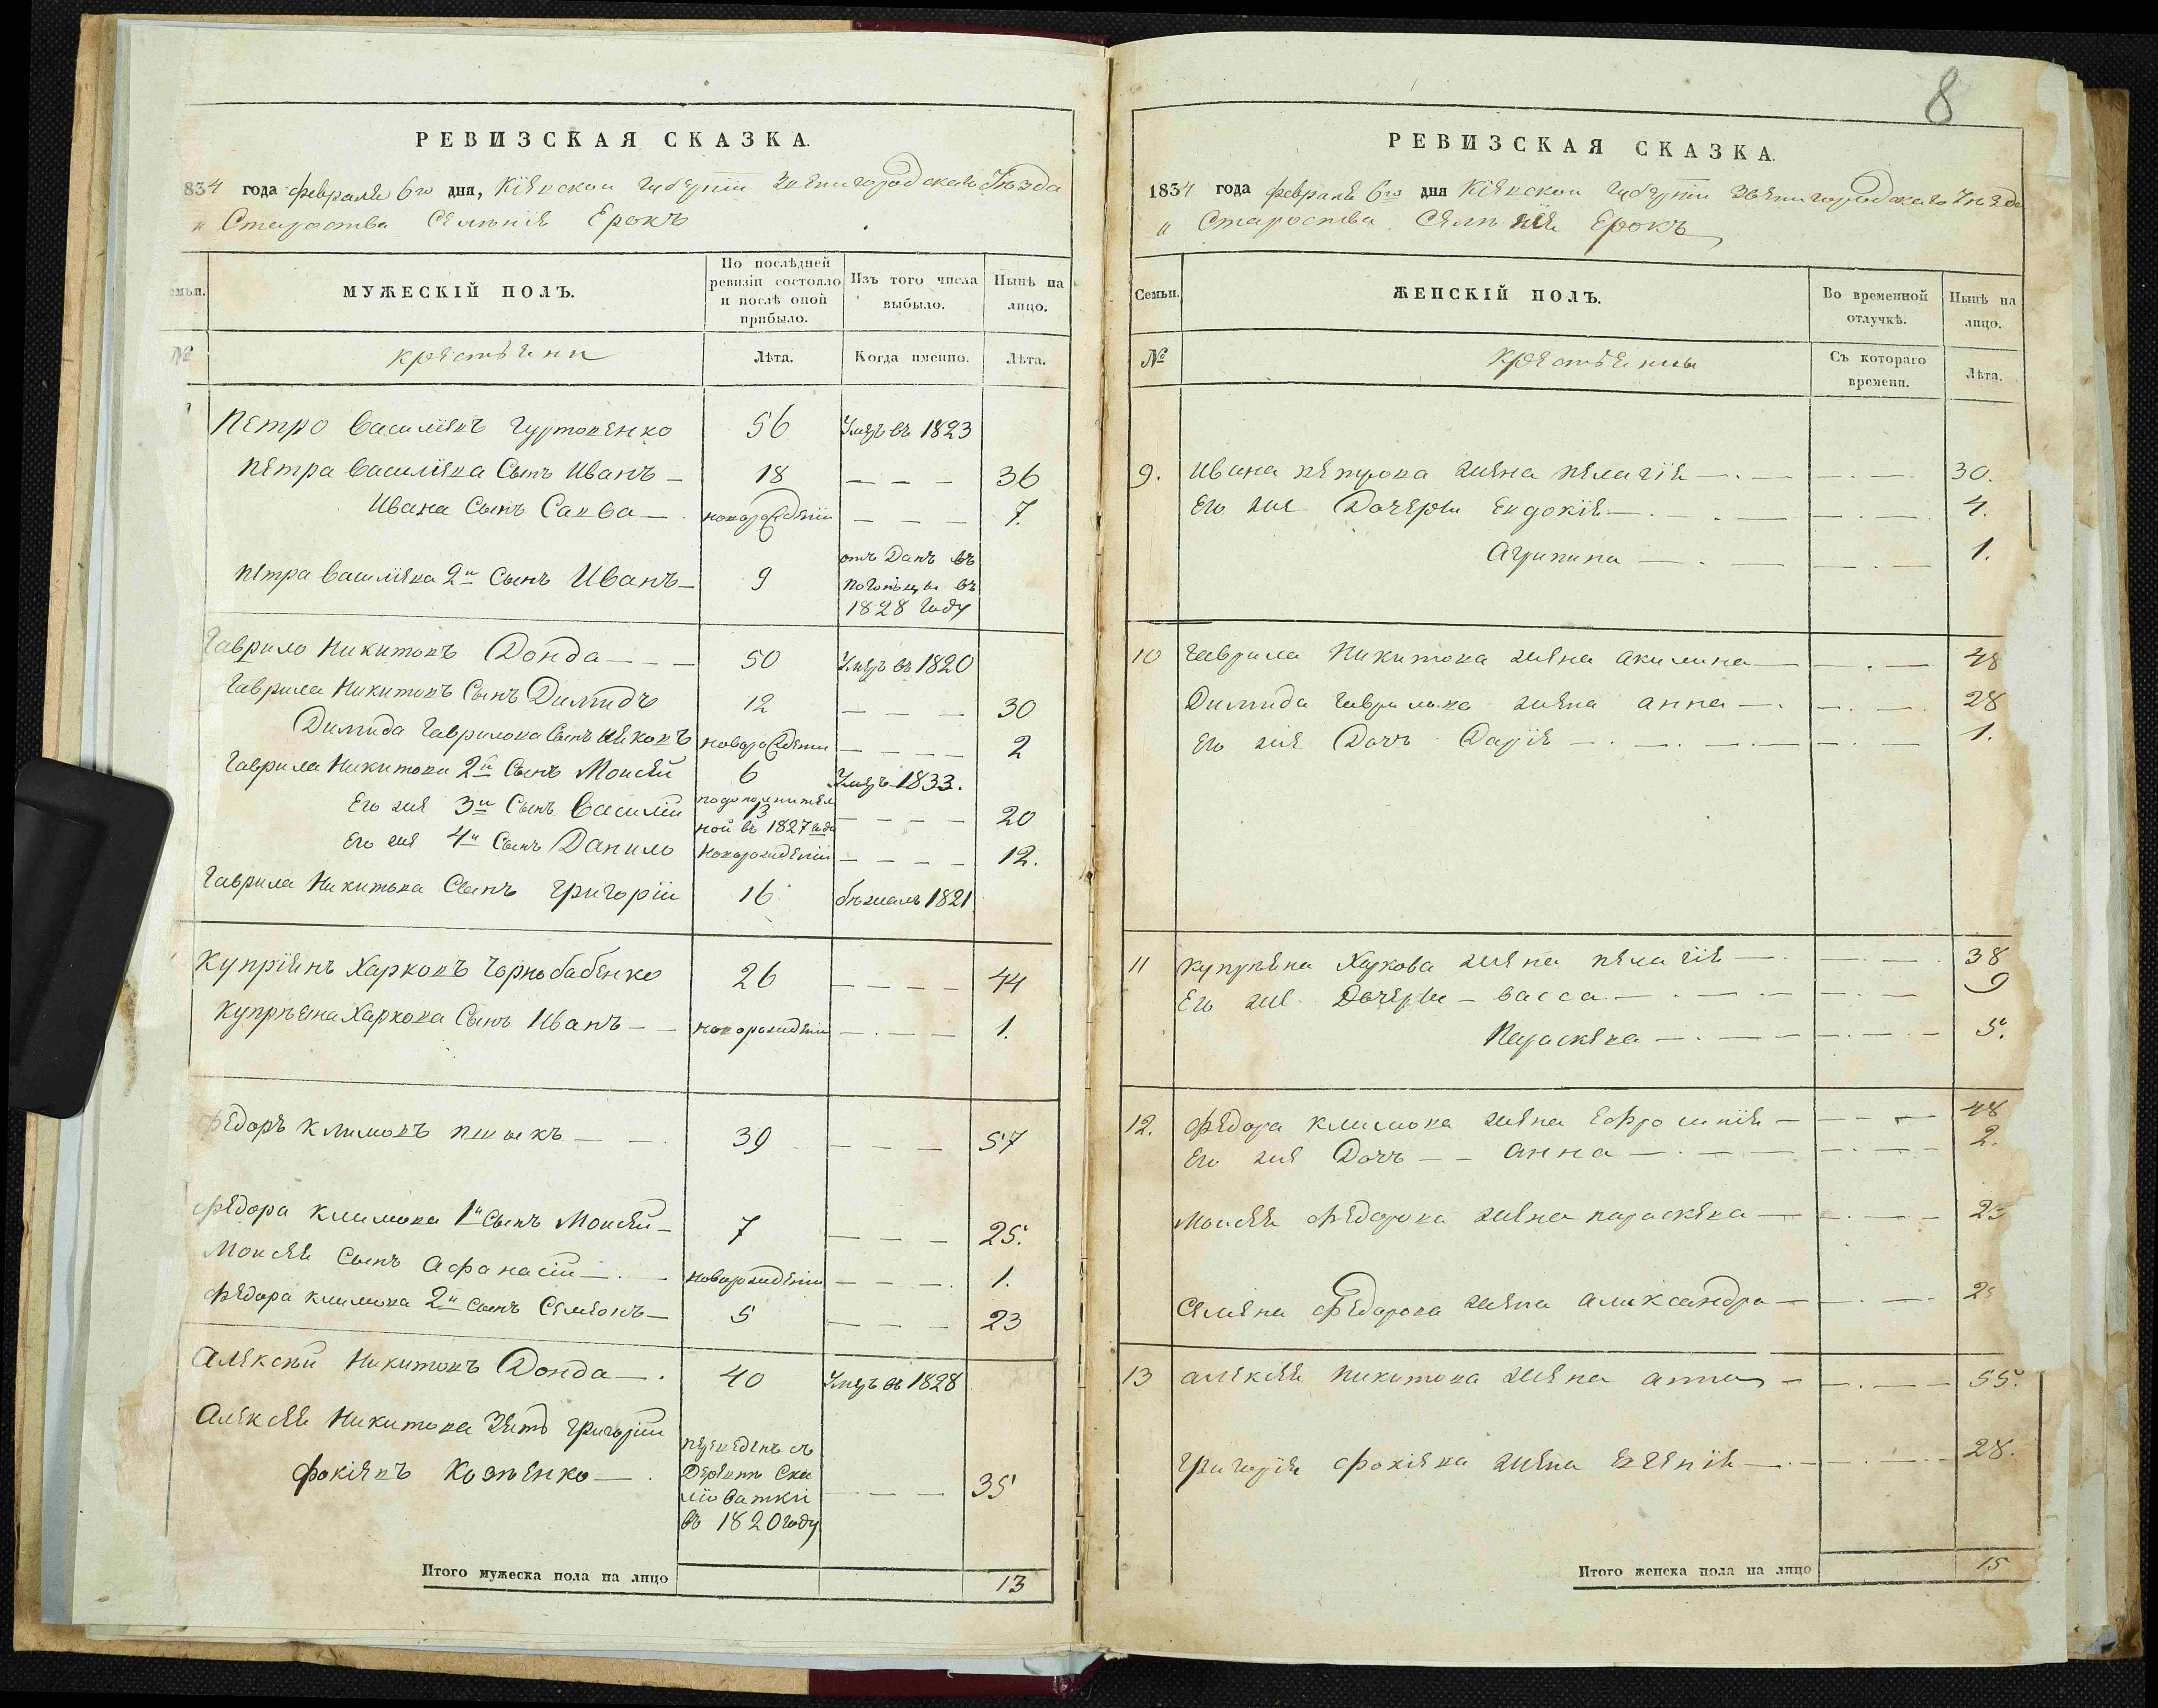 8
РЕВИЗСКАЯ СКАЗКА.
834 года февраля 6го дня, Кіевской Губерніи Звенигородскаго Уѣзда
" Староства Селеніе Ерокъ
емьи.
МУЖЕСКІЙ ПОЛЪ.
По послѣдней ревизіи состояло и послѣ оной прибыло.
Изъ того числа выбыло.
Нынѣ на лицо.
№
крестьяни
Лѣта.
Когда именно.
Лѣта.
Петро Васильевъ Гуртовенко 56 Умеръ въ 1823
Петра Васильева Сынъ Иванъ — 18 — — — 36
Ивана Сынъ Савва — новорожденій — — — 7.
Петра Васильева 2й Сынъ Иванъ — 9 отъ Данъ въ
погонцы въ
1828 Году
Гаврило Никитовъ Донда — — — 50 Умеръ въ 1820
Гаврила Никитовъ Сынъ Димидъ 12 — — — 30
Димида Гаврилова Сынъ новорожденій — — — — 2
Гаврила Никитова 2й Сынъ Моисей 6 Умеръ 1833.
Его же 3й Сынъ Василій 13 — — — — 20
ной въ 1827 года
Его же 4й Сынъ Данило Новорожденій — — — — 12.
Гаврила Никитова Сынъ Григорій 16 бѣжалъ 1821
Купріянъ Харковъ Чорнобабенко 26 — — — — 44
Купрьяна Харкова Сынъ Иванъ — — новорожденій — — — 1.
Федоръ Климовъ — — 39 — — — 57
Федора Климова 1й Сынъ Моисей — 7 — — — 25.
Моисея Сынъ Афанасій — — новорожденій — — — 1.
Федора Климова 2й сынъ Семіонъ — 5 — — — 23
Алексѣй Никитовъ Донда — 40 Умеръ въ 1828
Алексея Никитова Зять Григорій
Фокіевъ — переведенъ съ
Деревни
въ 1820 году — — — 35
Итого мужеска пола на лицо 13
РЕВИЗСКАЯ СКАЗКА.
1834 года февраля 6го дня Кіевской Губерніи Звенигородскаго Уѣзда
" Староства Селеніе Ерокъ
Семьи.
ЖЕНСКІЙ ПОЛЪ.
Во временной отлучкѣ.
Нынѣ на лицо.
№
Крестьянки
Съ котораго времени.
Лѣта.
9. Ивана Петрова жена Пелагія — — — 30.
Его же Дочери Евдокія — — — 4.
Агрипина — — — 1.
10 Гаврила Никитова жена Акилина — — — 48
Димида Гаврилова жена Анна — — — 28
Его же Дочь Дарія — — — 1.
11 Купрьяна Харкова жена Пелагія — — — 38
Его же Дочери — Васса — — — 9
Параскева — — — 5.
12. Федора Климова жена Ефросинія — — — 48
Его же Дочь — — Анна — — — 2.
Моисея Федорова жена Параскева — — — 23
Семена Федорова жена Александра — — —
13 Алексея Никитова жена Анна — — — 55.
Григорія Фокіева жена Евгенія — — — 28.
Итого женска пола на лицо 15